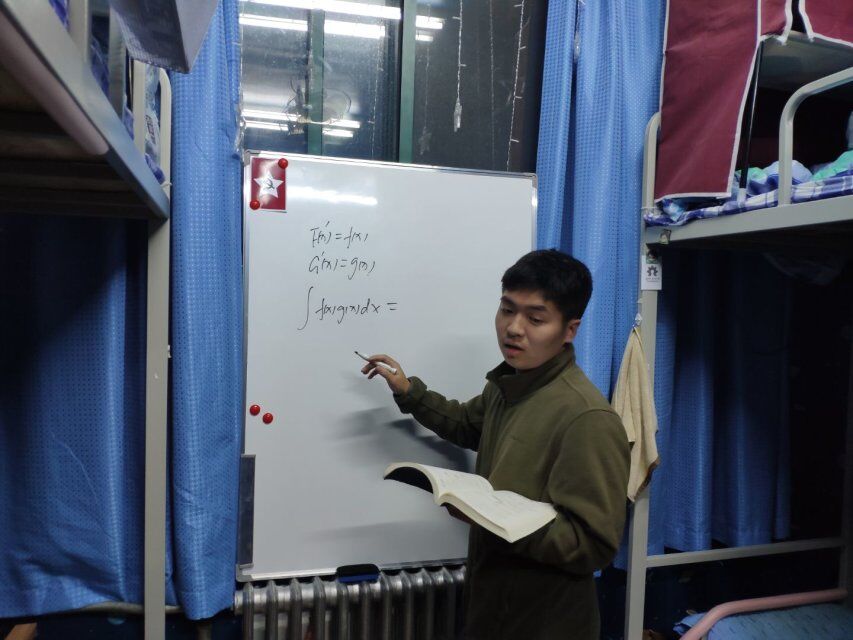 F'(x) = f(x)
G'(x) = g(x)
∫ f(x) g(x) dx =